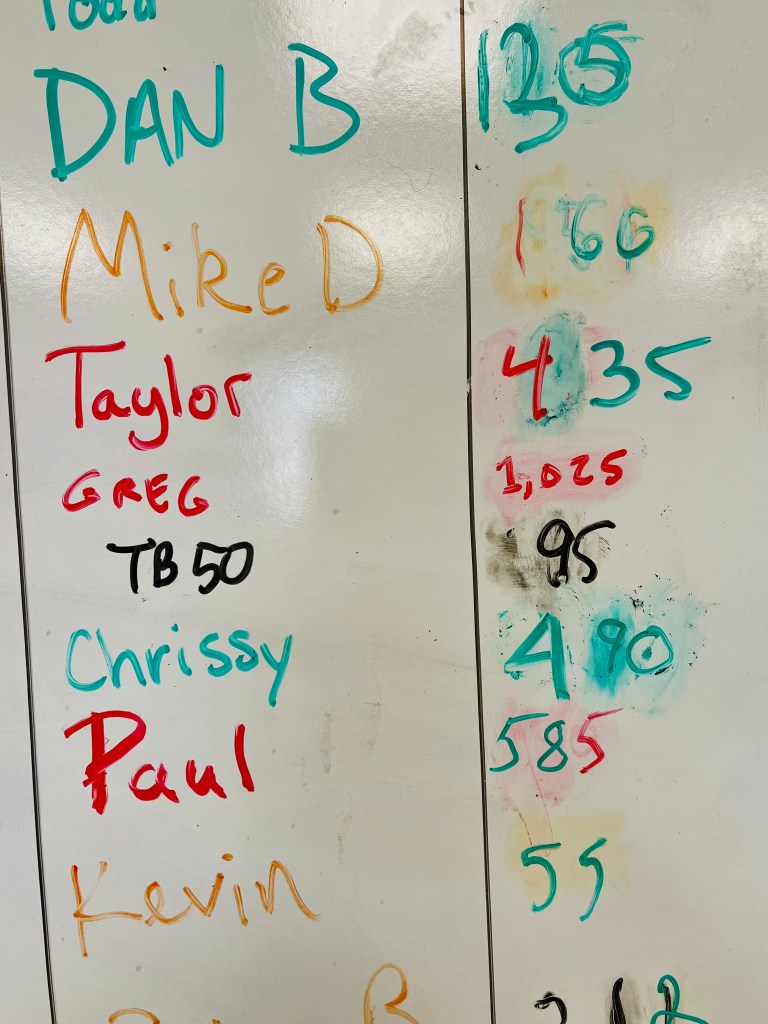 Todd
DAN B 135
Mike D 166
Taylor 435
GREG 1,025
TB50 95
Chrissy 490
Paul 585
Kevin 55
B